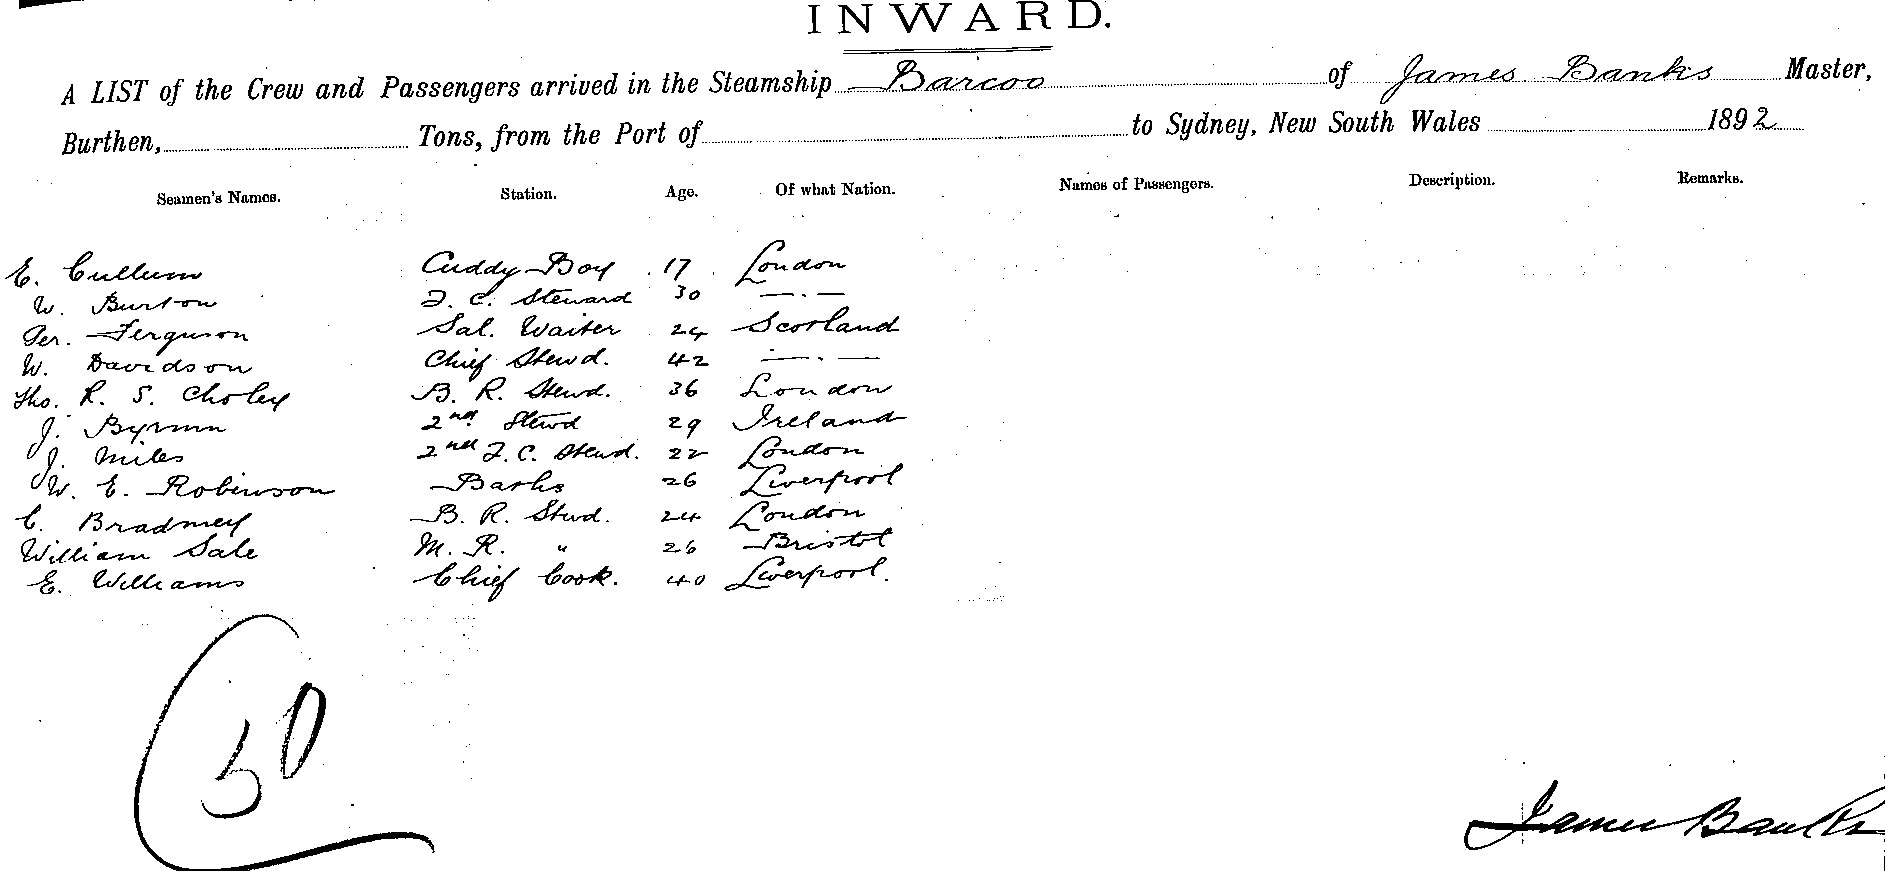 INWARD.
A LIST of the Crew and Passengers arrived in the Steamship Barcoo of James Banks Master,
Burthen, Tons, from the Port of to Sydney, New South Wales 1892
Seamen's Names. Station. Age. Of what Nation. Names of Passengers. Description. Remarks.
E. Cullum Cuddy Boy 17 London
W. Burton F. C. Steward 30 —.—
Ferguson Sal. Waiter 24 Scotland
W. Davidson Chief Stewd. 42 —.—
Tho. R. S. Choley B. R. Stewd. 36 London
J. 2nd Stewd 29 Ireland
J. Miles 2nd F. C. Stewd. 22 London
W. E. Robinson Baths 26 Liverpool
C. Bradmey B. R. Stwd. 24 London
William Sale M. R. " 26 Bristol
E. Williams Chief Cook. 40 Liverpool.
50
James Banks